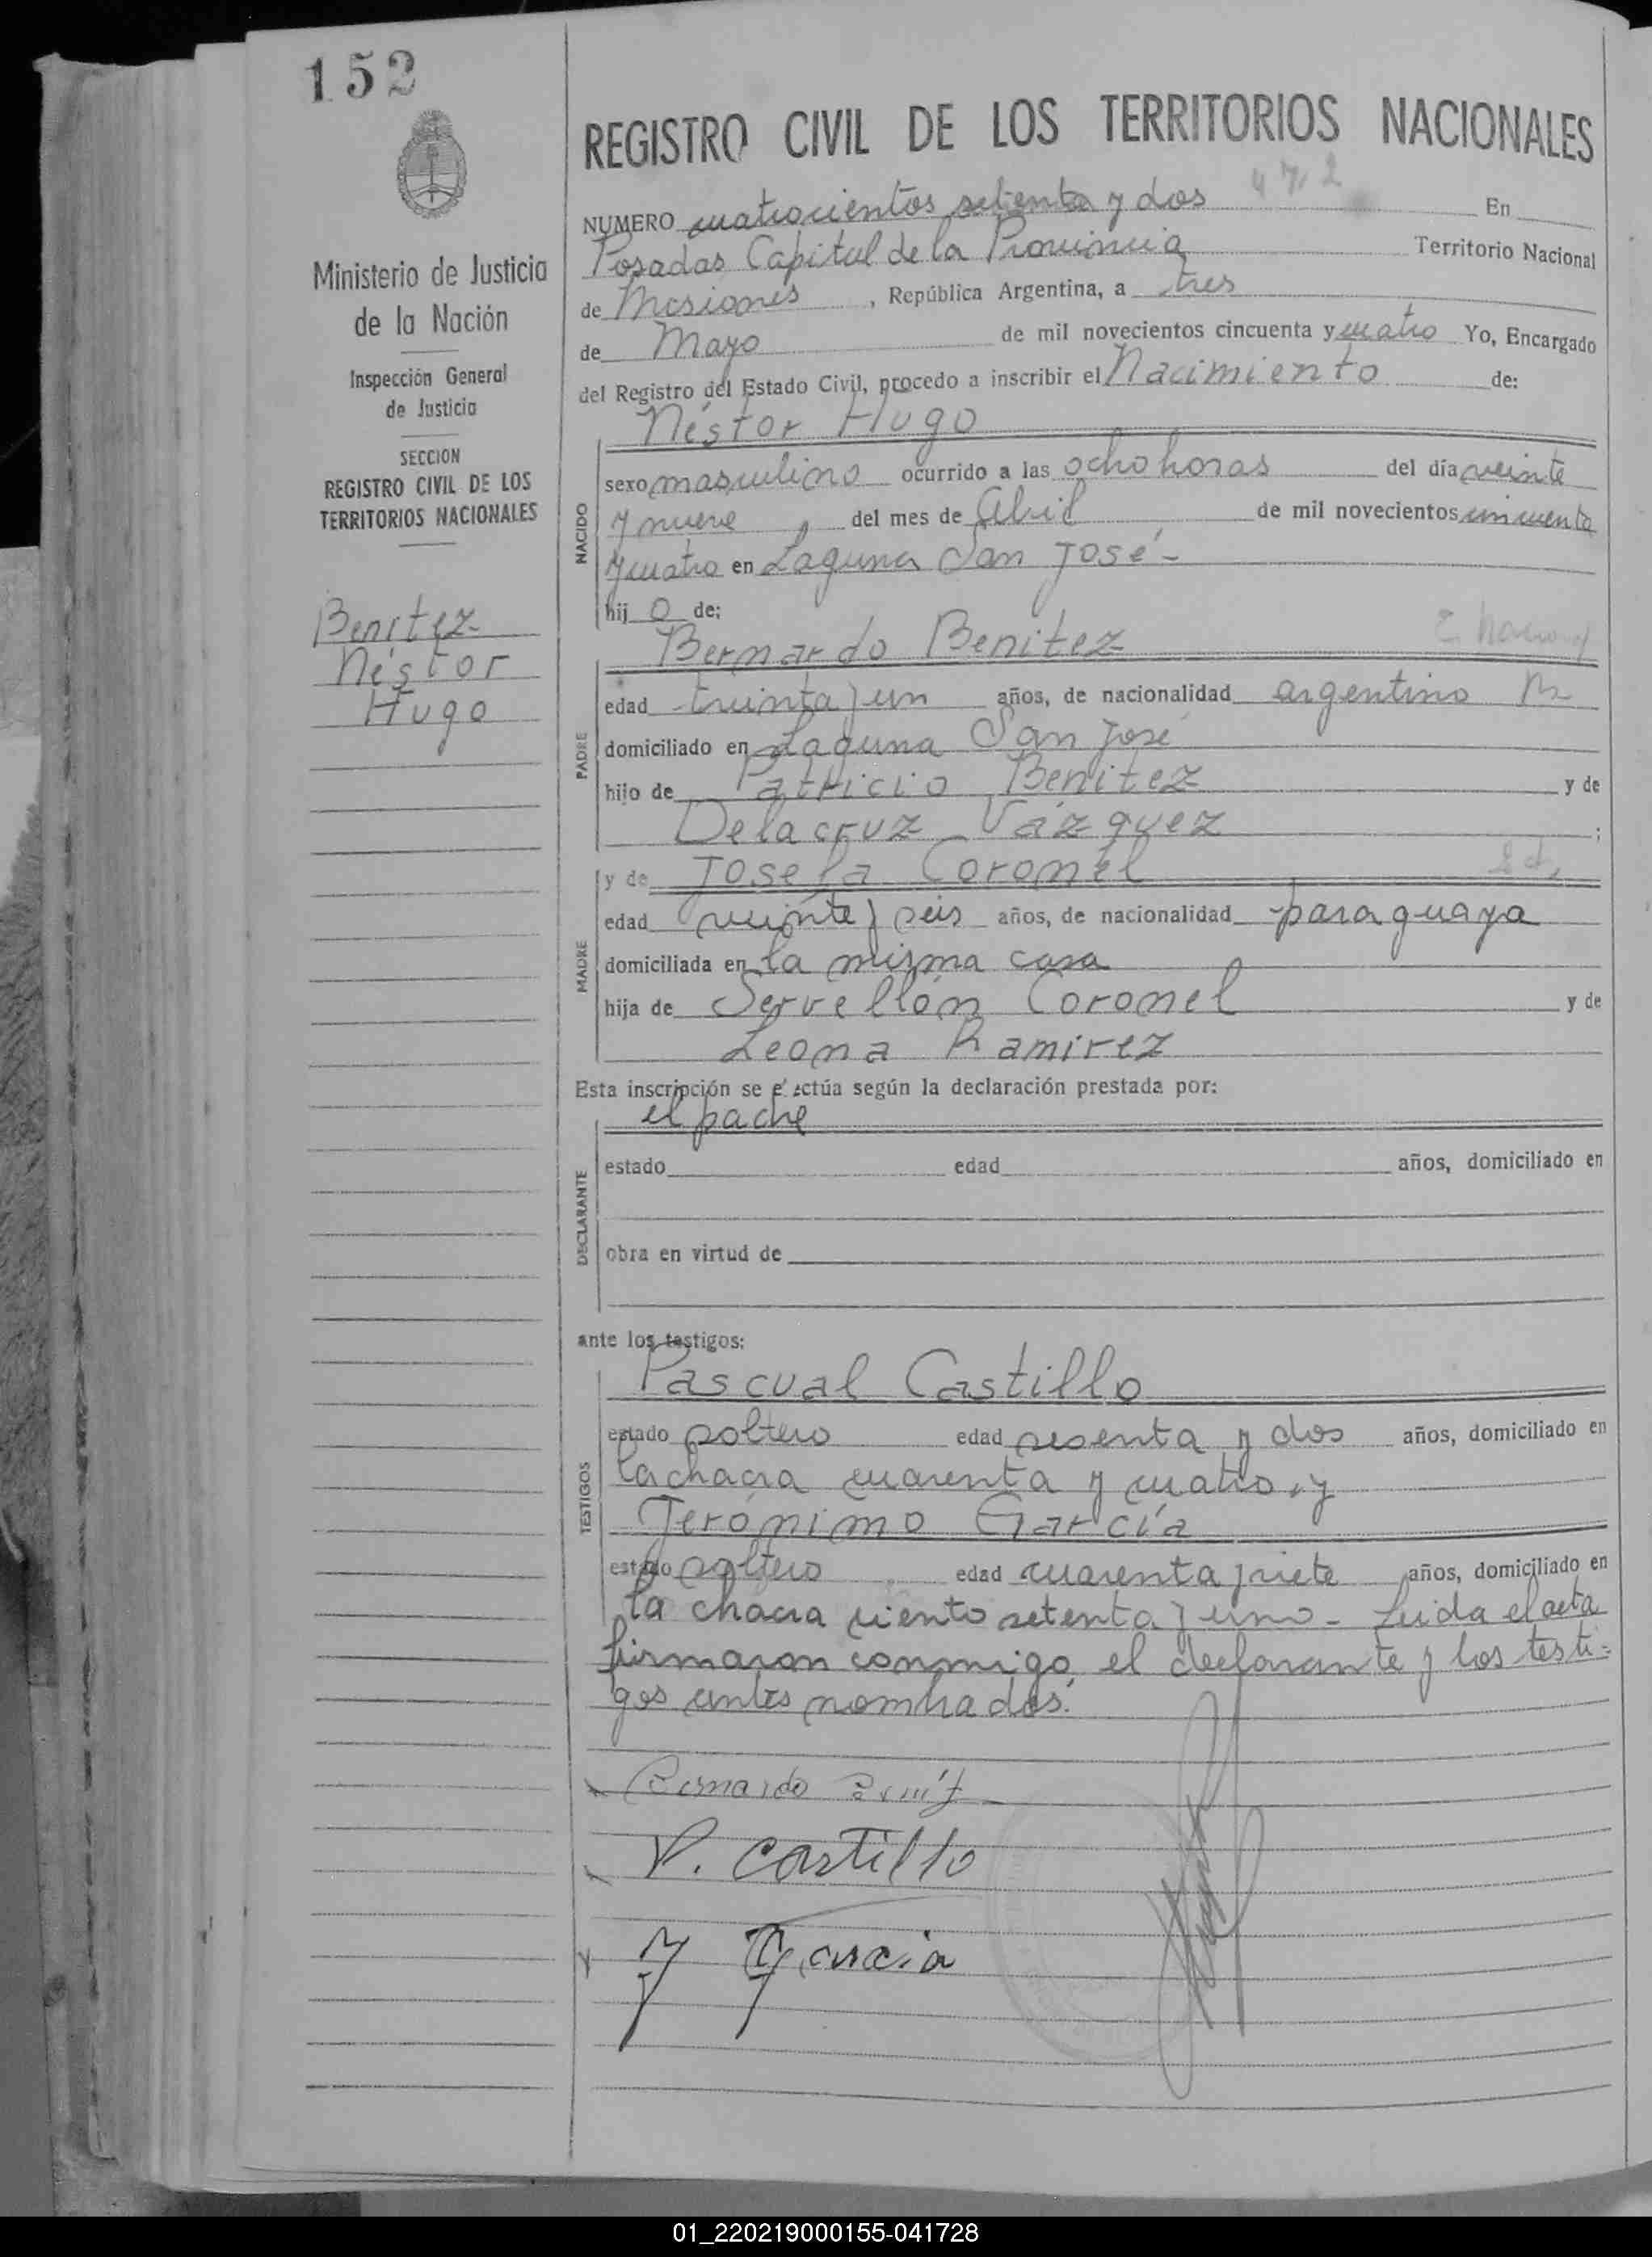 152
REGISTRO CIVIL DE LOS TERRITORIOS NACIONALES
Ministerio de Justicia
de la Nación
Inspección General
de Justicia
SECCION
REGISTRO CIVIL DE LOS
TERRITORIOS NACIONALES
Benítez
Néstor
Hugo
NUMERO cuatrocientos setenta y dos 472 En
Posadas Capital de la Provincia Territorio Nacional
de Misiones, República Argentina, a tres
de Mayo de mil novecientos cincuenta y cuatro Yo, Encargado
del Registro del Estado Civil, procedo a inscribir el Nacimiento de:
NACIDO
Néstor Hugo
sexo masculino ocurrido a las ocho horas del día veinte
y nueve, del mes de Abril de mil novecientos cincuenta
y cuatro en Laguna San José.-
hijo de:
PADRE
Bernardo Benitez
edad treinta y un años, de nacionalidad argentino
domiciliado en Laguna San José
hijo de Patricio Benitez y de
Delacruz Vázquez ;
MADRE
y de Josefa Coronel
edad veinte y seis años, de nacionalidad paraguaya
domiciliada en la misma casa
hija de Servellón Coronel y de
Leona Ramirez
Esta inscripción se efectúa según la declaración prestada por:
DECLARANTE
el padre
estado edad años, domiciliado en
obra en virtud de
ante los testigos:
TESTIGOS
Pascual Castillo
estado soltero edad sesenta y dos años, domiciliado en
la chacra cuarenta y cuatro, y
Jerónimo García
estado soltero edad cuarenta y siete años, domiciliado en
la chacra ciento setenta y uno.- Leida el acta
firmaron conmigo el declarante y los testi-
gos antes nombrados.
Bernardo Benitz
P. Castillo
J Garcia
01_220219000155-041728